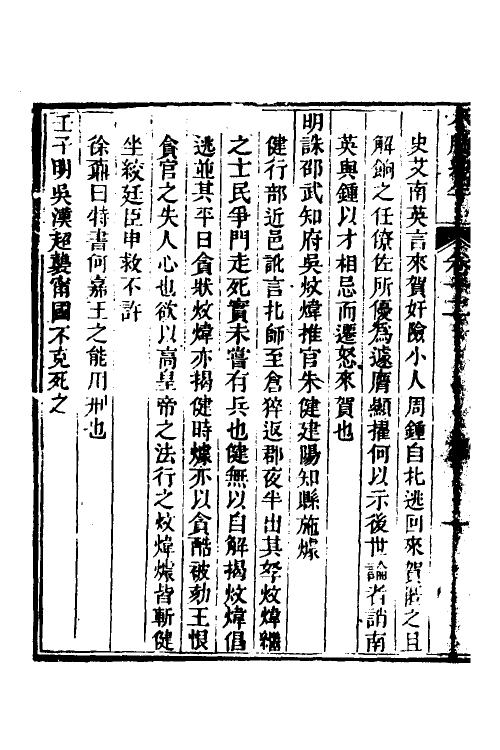 史艾南英言來賀奸險小人周鍾自北逃回來賀薦之且
解餉之任僚佐所優為遽膺顯擢何以示後世論者誚南
英與鍾以才相忌而遷怒來賀也
明誅邵武知府吳炆煒推官朱健建陽知縣施㸅
健行部近邑訛言北師至倉猝返郡夜半出其孥炆煒繼
之士民爭門走死實未嘗有兵也健無以自解揭炆煒倡
逃並其平日貪狀炆煒亦揭健時㸅亦以貪酷被劾王恨
貪官之失人心也欲以高皇帝之法行之炆煒㸅皆斬健
坐絞廷臣申救不許
徐鼒曰特書何嘉王之能用刑也
壬子明吳漢超襲甯國不克死之